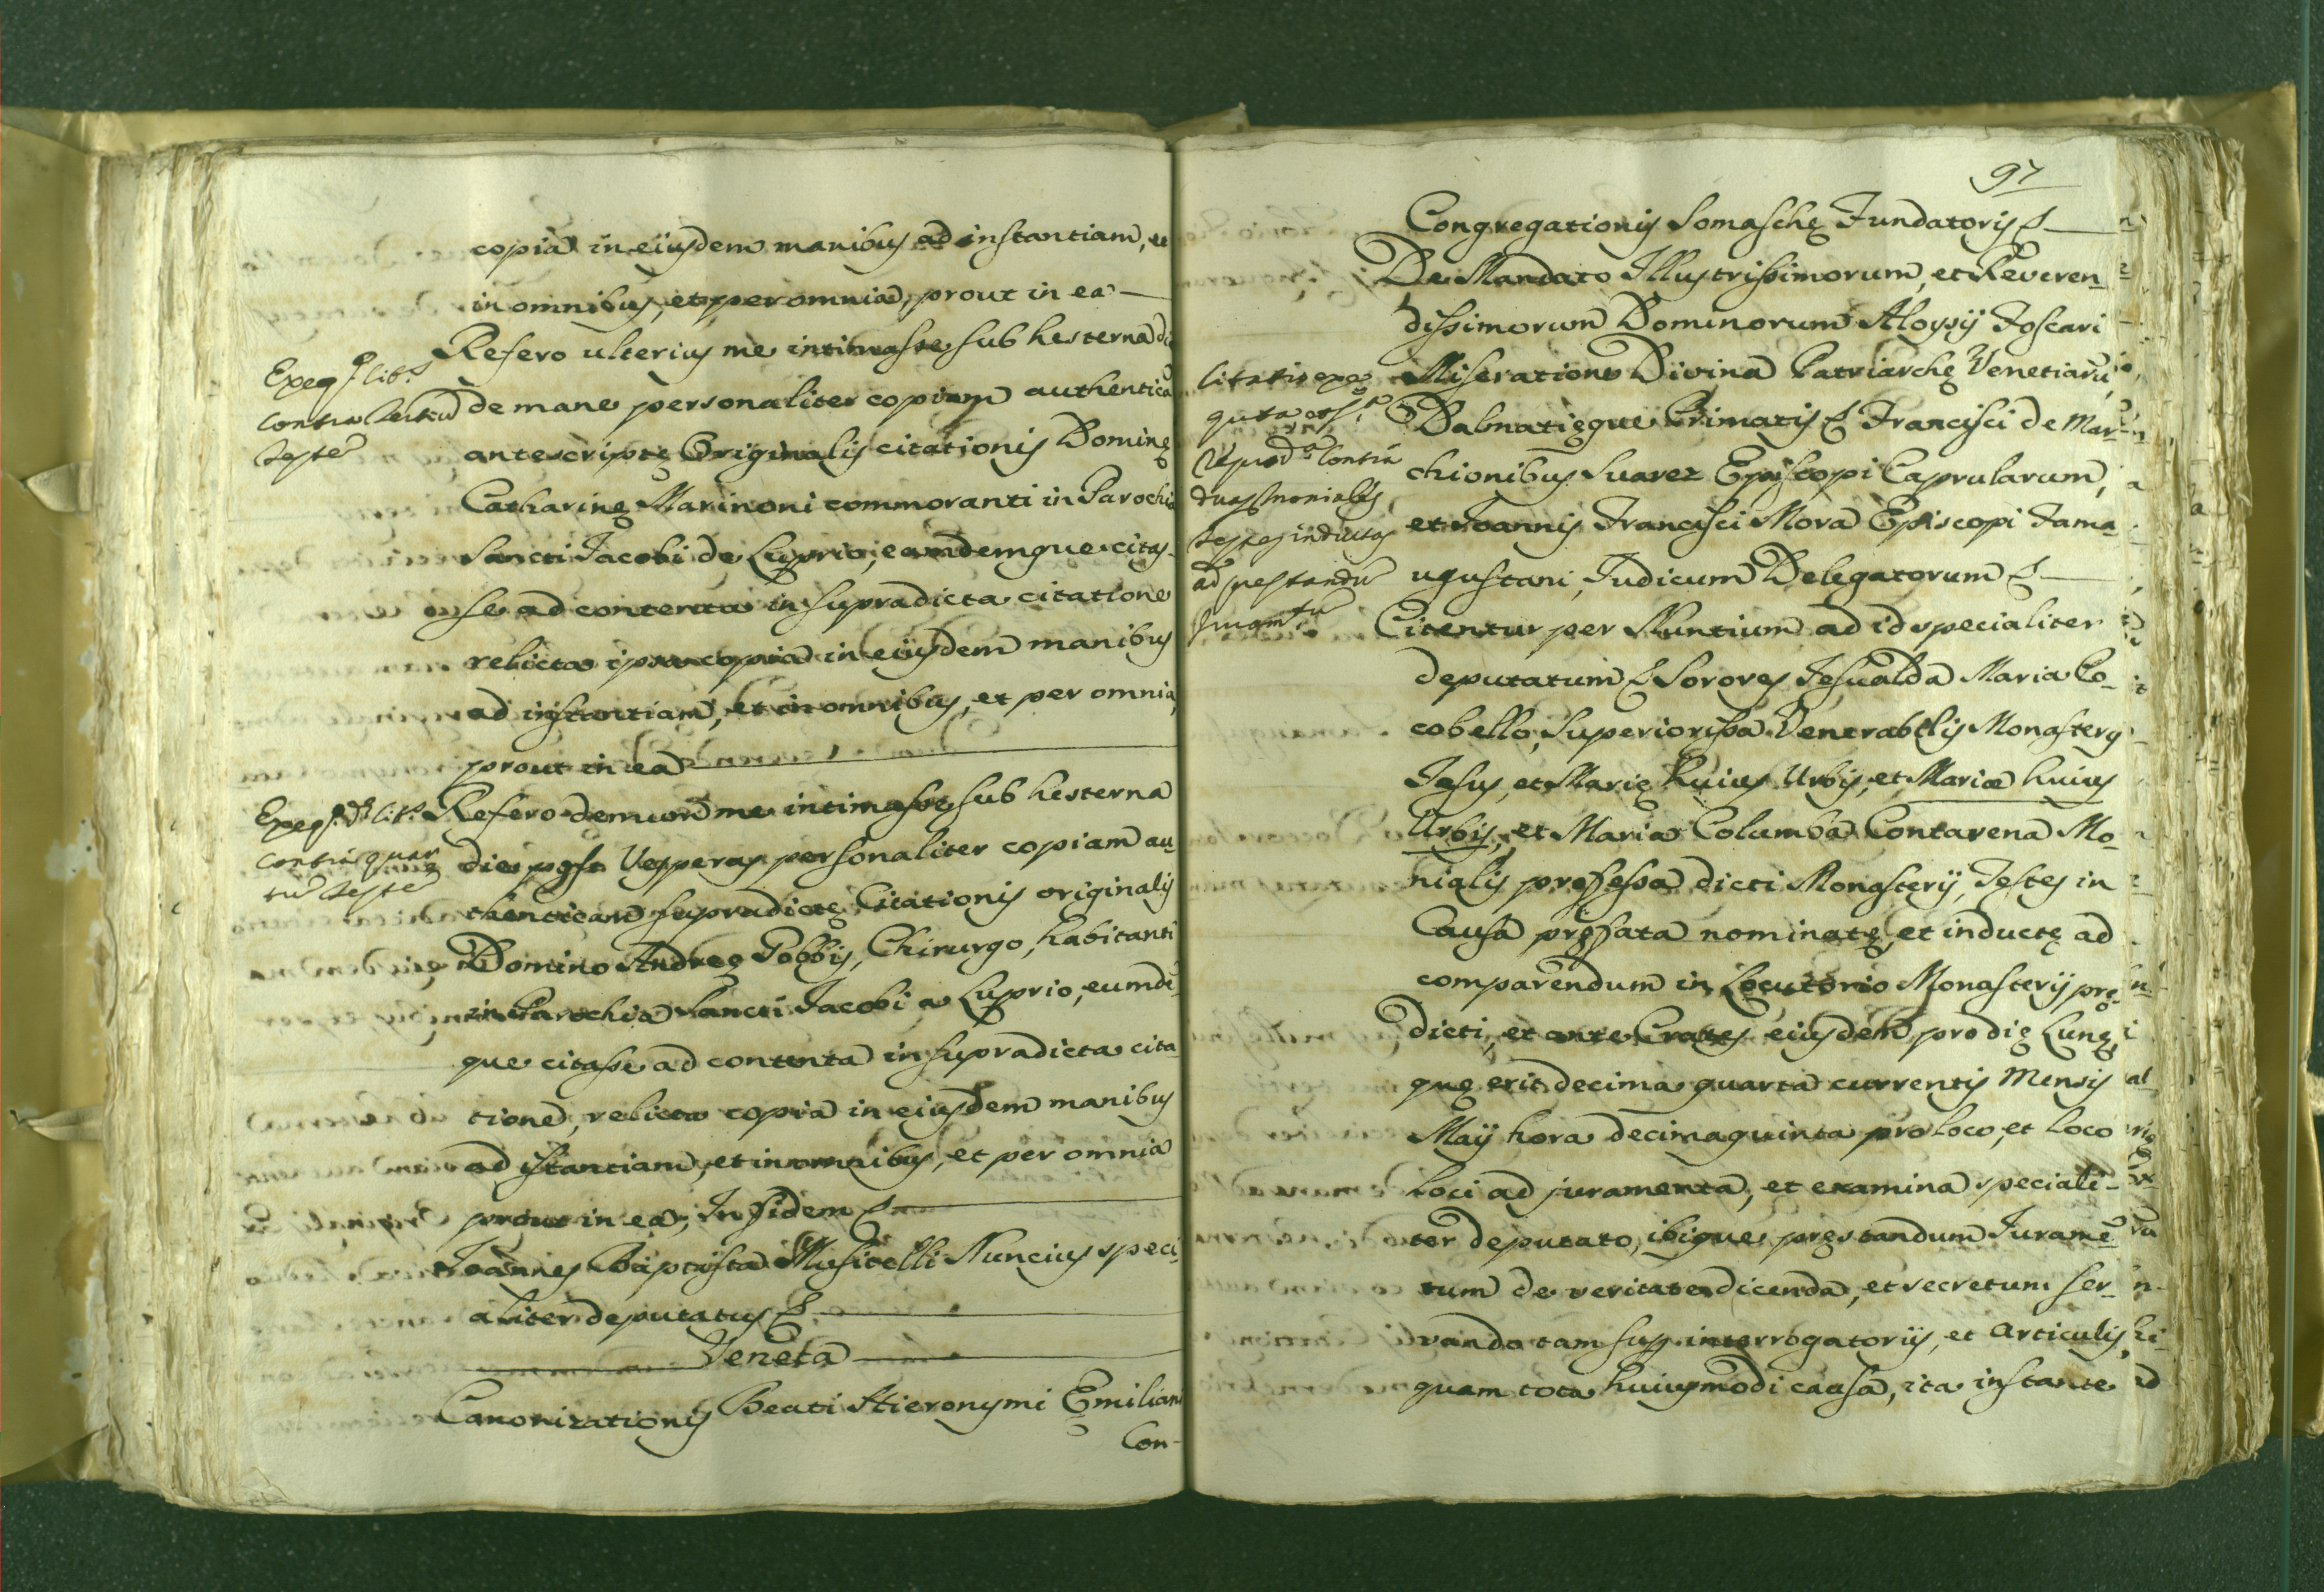 copia in eiusdem manibus ad instantiam, et
in omnibus, et per omnia, prout in ea
Refero ulterius me intimasse sub hesterna di
de mane personaliter copiam authentica
antescriptę Originalis citationis Dominę
Catharinę Marinoni commoranti in Parochia
Sancti Jacobi de Luprio, eamdemque citas-
se ad contenta in supradicta citatione
relicta ipsa copia in eiusdem manibus
ad instantiam, et in omnibus, et per omnia,
prout in ea
Refero demum me intimasse sub hesterna
die post Vesperas personaliter copiam au
thenticam supradictę Citationis originalis
Domino Andreę Gobbis, Chirurgo, habitanti
in Parochia Sancti Jacobi a Luprio, eumdē-
que citasse ad contenta in supradicta cita
tione, relicta copia in eiusdem manibus
ad istantiam, et in omnibus, et per omnia
prout in ea, In fidem
Joannes Baptista Musitelli Nuncius speci
aliter deputatus
Veneta
Canonizationis Beati Hieronymi Emiliani
Con-
Exeq.
contra tertiū
testē
Exeq.
contra quar
tū testē
97
Congregationis Somaschę Fundatoris
De Mandato Illustrissimorum, et Reveren
dissimorum Dominorum Aloysij Foscari
Miseratione Divina Patriarchę Venetiarū,
Dalmatięque Primatis Francisci de Mar-
chionibus Suarez Episcopi Caprularum,
et Joannis Francisci Mora Episcopi Fama
ugustani, Iudicum Delegatorum
Citentur per Nuntium ad id specialiter
deputatum Sorores Jesualda Maria Co-
cobello, Superiorissa Venerabilis Monastery
Jesus, et Marię huius Urbis, et Mariæ huius
Urbis, et Maria Columba Contarena Mo-
nialis professa dicti Monasterij, Testes in
Causa pręfata nominatę, et inductę ad
comparendum in Locutorio Monasterij prę-
dicti, et ante Crates eiusdem pro dię Lunę,
quę erit decima quarta currentis Mensis
Maij hora decimaquinta pro loco, et loco
loci ad juramenta, et examina speciali-
ter deputato, ibique pręstandum Juramē
tum de veritate dicenda, et secretum ser-
vando tam sup. interrogatorijs, et articulis,
quam tota huiusmodi causa, ita instante
Contra
duas moniales
testes inductas
ad prestandū